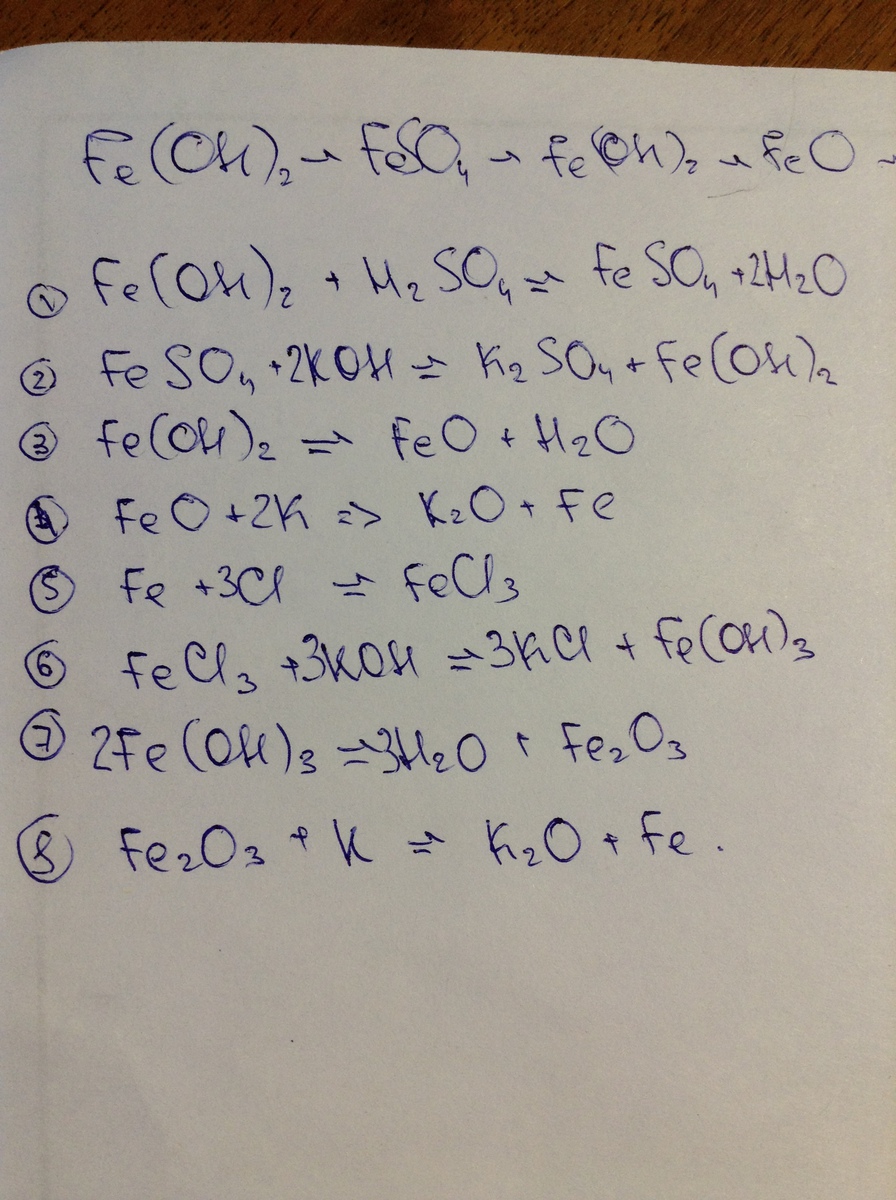 Fe(OH)₂ → FeSO₄ → Fe(OH)₂ → FeO →
① Fe(OH)₂ + H₂SO₄ ⇒ FeSO₄ + 2H₂O
② FeSO₄ + 2KOH ⇒ K₂SO₄ + Fe(OH)₂
③ Fe(OH)₂ ⇒ FeO + H₂O
④ FeO + 2K ⇒ K₂O + Fe
⑤ Fe + 3Cl ⇒ FeCl₃
⑥ FeCl₃ + 3KOH ⇒ 3KCl + Fe(OH)₃
⑦ 2Fe(OH)₃ ⇒ 3H₂O + Fe₂O₃
⑧ Fe₂O₃ + K ⇒ K₂O + Fe.